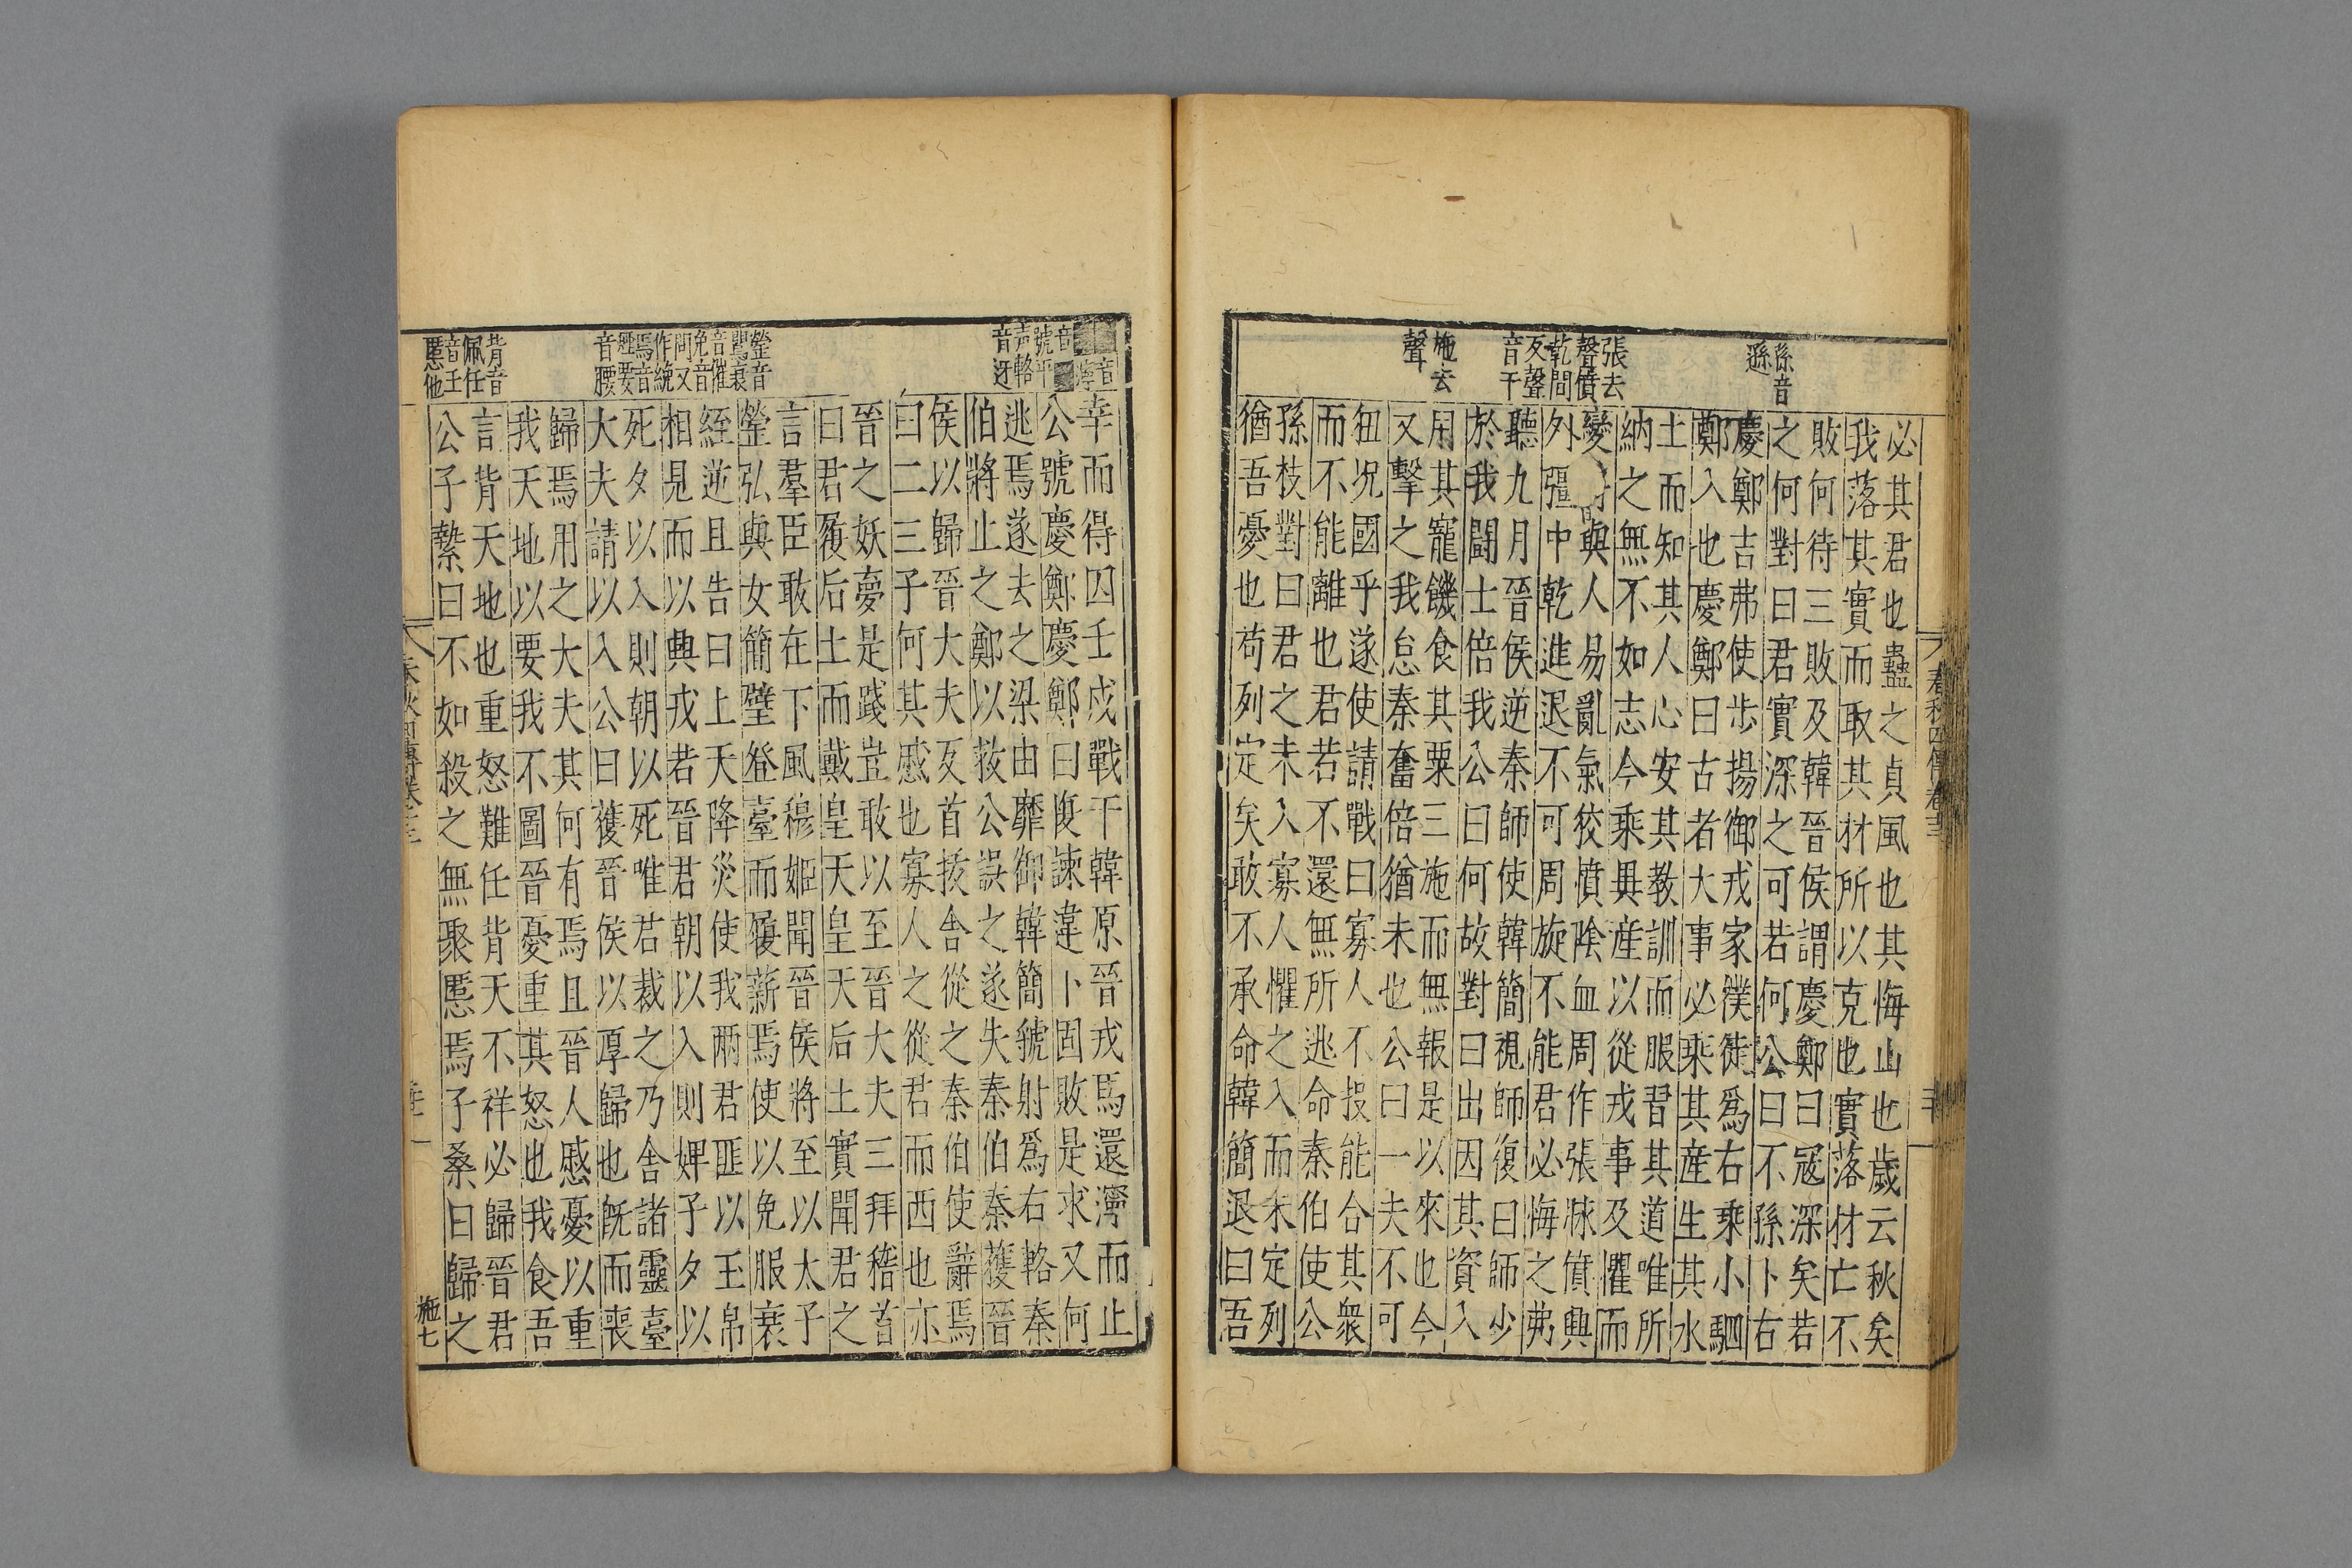 春秋四傳卷十三
孫音
遜
張去
聲僨
乾間
反聲
音干
施去
聲
必其君也蠱之貞風也其悔山也歲云秋矣
我落其實而取其材所以克也實落材亡不
敗何待三敗及韓晉侯謂慶鄭曰寇深矣若
之何對曰君實深之可若何公曰不孫卜右
慶鄭吉弗使步揚御戎家僕徒爲右乘小駟
鄭入也慶鄭曰古者大事必乘其産生其水
土而知其人心安其教訓而服習其道唯所
納之無不如志今乘異産以從戎事及懼而
變 與人易亂氣狡憤陰血周作張脉僨興
外彊中乾進退不可周旋不能君必悔之弗
聽九月晉侯逆秦師使韓簡視師復曰師少
於我鬭士倍我公曰何故對曰出因其資入
用其寵饑食其粟三施而無報是以來也今
又擊之我怠秦奮倍猶未也公曰一夫不可
狃況國乎遂使請戰曰寡人不佞能合其衆
而不能離也君若不還無所逃命秦伯使公
孫枝對曰君之未入寡人懼之入而未定列
猶吾憂也苟列定矣敢不承命韓簡退曰吾
音
號平
声輅
音迓
罃音
鸎衰
音催
免音
問又
作絻
焉音
煙要
音腰
背音
佩任
音壬
慝他
幸而得囚壬戌戰于韓原晉戎馬還濘而止
公號慶鄭慶鄭曰愎諫違卜固敗是求又何
逃焉遂去之梁由靡御韓簡虢射爲右輅秦
伯將止之鄭以救公誤之遂失秦伯秦獲晉
侯以歸晉大夫反首拔舍從之秦伯使辭焉
曰二三子何其慼也寡人之從君而西也亦
晉之妖夢是踐豈敢以至晉大夫三拜稽首
曰君履后土而戴皇天皇天后土實聞君之
言羣臣敢在下風穆姬聞晉侯將至以太子
罃弘與女簡璧登臺而履薪焉使以免服衰
絰逆且告曰上天降災使我兩君匪以玉帛
相見而以興戎若晉君朝以入則婢子夕以
死夕以入則朝以死唯君裁之乃舍諸靈臺
大夫請以入公曰獲晉侯以厚歸也既而喪
歸焉用之大夫其何有焉且晉人慼憂以重
我天地以要我不圖晉憂重其怒也我食吾
言背天地也重怒難任背天不祥必歸晉君
公子縶曰不如殺之無聚慝焉子桑曰歸之
施七